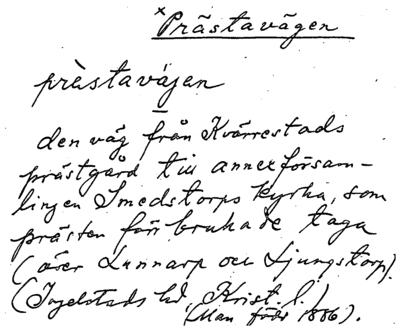 × Prästavägen
prästavä́jen
den väg från Kvärrestads
prästgård till annexförsam-
lingen Smedstorps kyrka, som
prästen förr brukade taga
(över Lunnarp och Ljungstorp).
(Ingelstads hd, Krist. l.)
(Man född 1886).